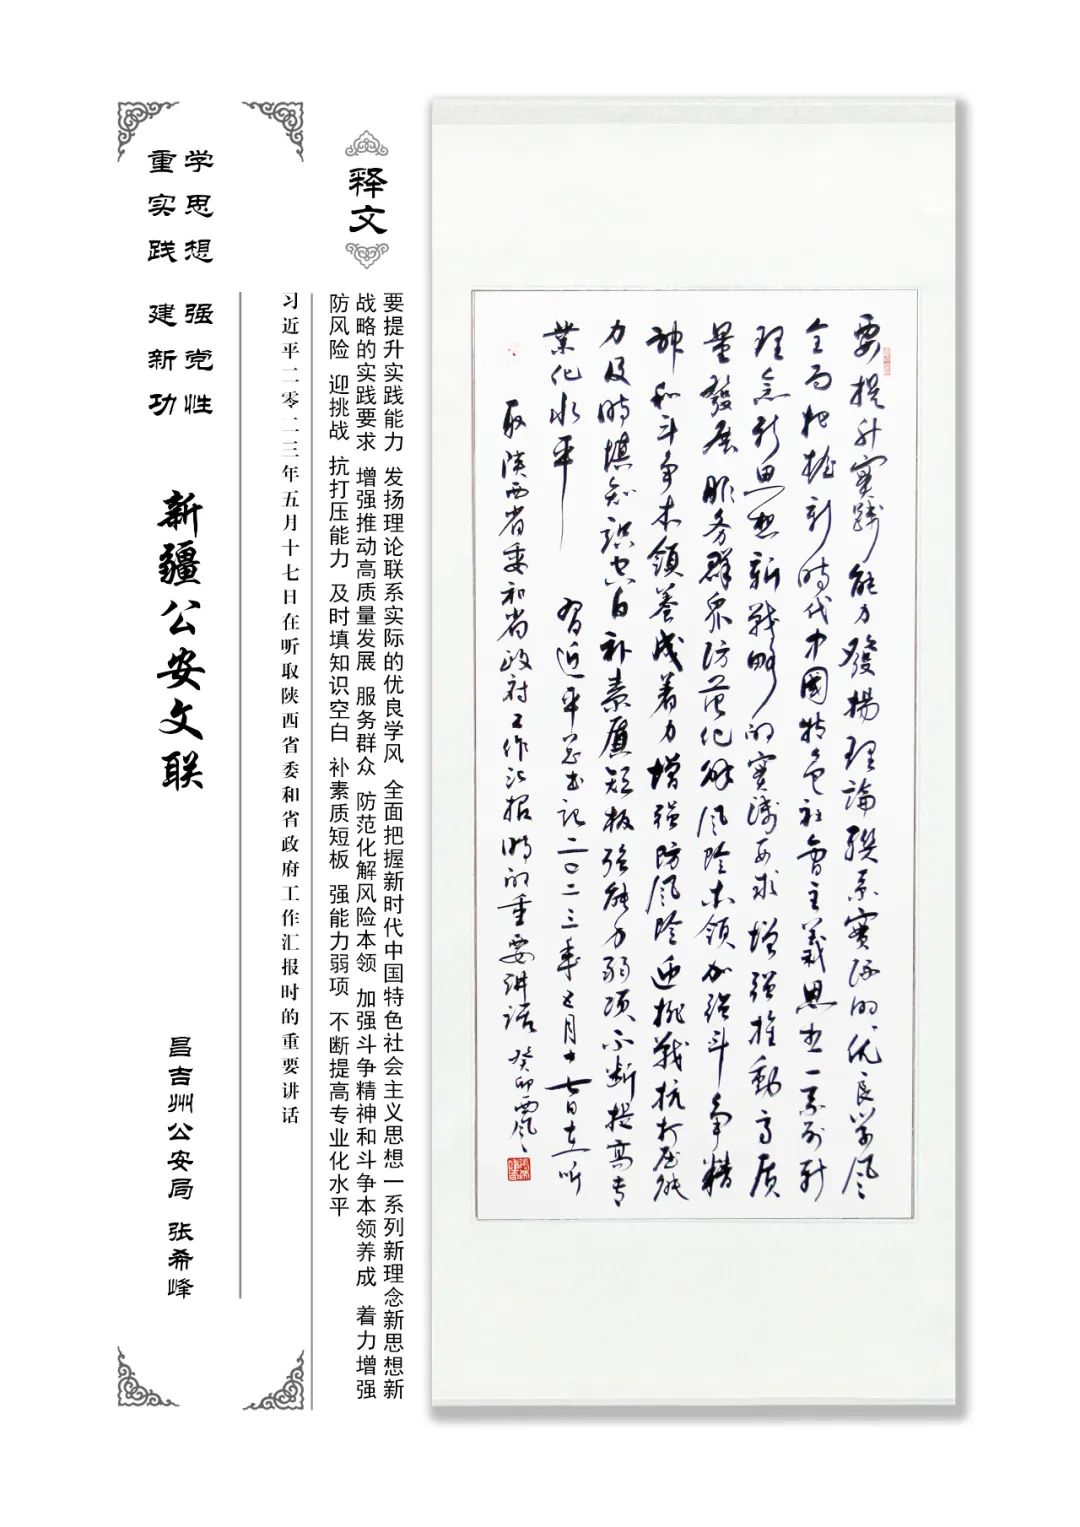 要提升實踐能力發揚理論聯系實际的优良学风
全面把握新時代中國特色社會主義思想一系列新
理念新思想新戰略的實踐要求增强推動高质
量發展服务群众防范化解风险本领加强斗争精
神和斗争本領養成着力增强防风险迎挑戰抗打压能
力及時填知识空白补素质短板强能力弱项不断提高专
業化水平 習近平总书记二〇二三年五月十七日在听
取陕西省委和省政府工作汇报時的重要讲话 癸卯西风
释文
要提升实践能力 发扬理论联系实际的优良学风 全面把握新时代中国特色社会主义思想一系列新理念新思想新
战略的实践要求 增强推动高质量发展 服务群众 防范化解风险本领 加强斗争精神和斗争本领养成 着力增强
防风险 迎挑战 抗打压能力 及时填知识空白 补素质短板 强能力弱项 不断提高专业化水平
习近平二零二三年五月十七日在听取陕西省委和省政府工作汇报时的重要讲话
学思想 强党性
重实践 建新功
新疆公安文联
昌吉州公安局 张希峰